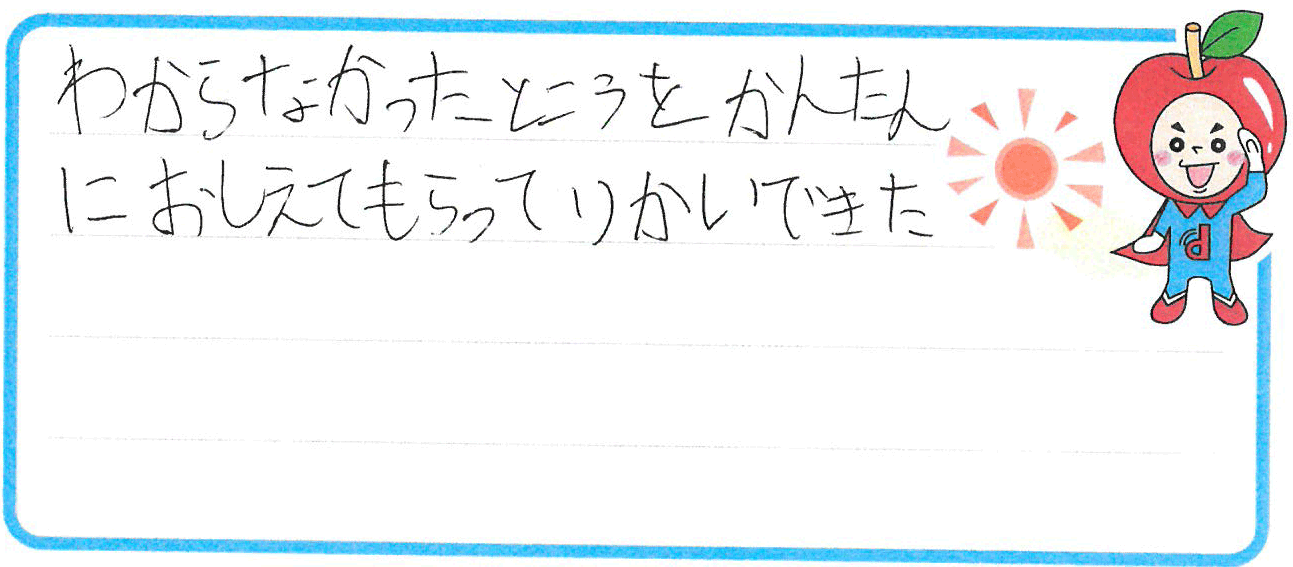 わからなかったところをかんたん
におしえてもらってりかいできた
d